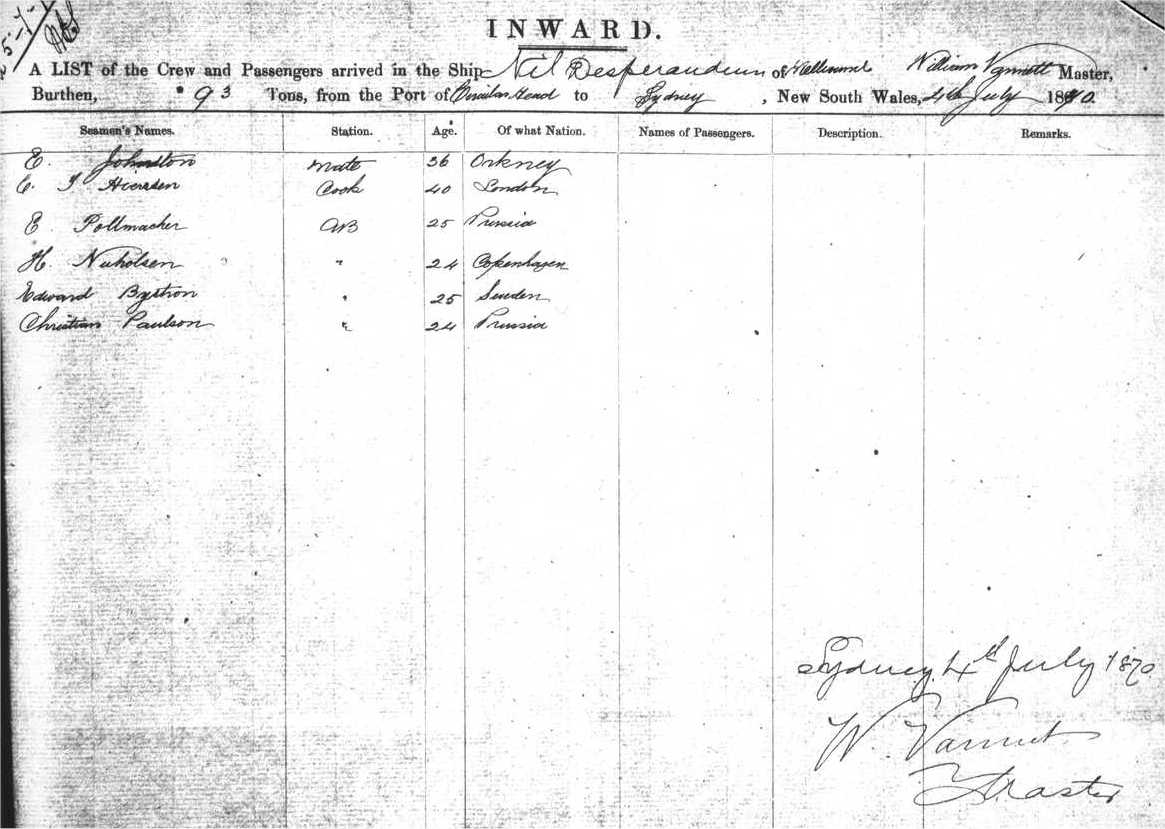 25-7-7
INWARD.
A LIST of the Crew and Passengers arrived in the Ship Nil Desperandum of William Vannett Master,
Burthen, 93 Tons, from the Port of Circular Head to Sydney, New South Wales, 4th July 1870
Seamen's Names. Station. Age. Of what Nation. Names of Passengers. Description. Remarks.
E. Johnston Mate 36 Orkney
Cook 40 London
E Pollmacher AB 25 Prussia
H. Nicholsen " 24 Copenhagen
Edward Bystron " 25 Sweden
Christian Paulson " 24 Prussia
Sydney 4th July 1870
W. Vannet
Master